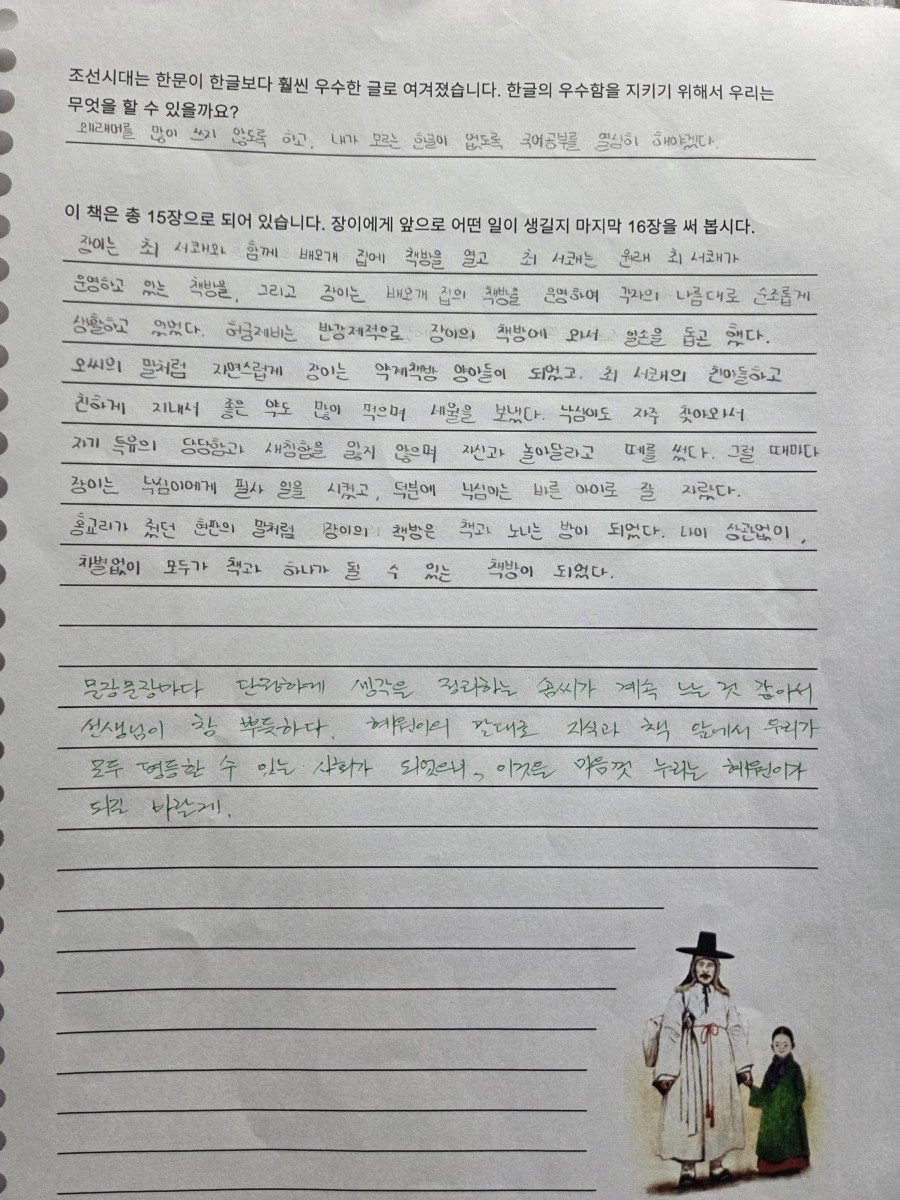 조선시대는 한문이 한글보다 훨씬 우수한 글로 여겨졌습니다. 한글의 우수함을 지키기 위해서 우리는
무엇을 할 수 있을까요?
외래어를 많이 쓰지 않도록 하고, 내가 모르는 한글이 없도록 국어공부를 열심히 해야겠다.
이 책은 총 15장으로 되어 있습니다. 장이에게 앞으로 어떤 일이 생길지 마지막 16장을 써 봅시다.
장이는 최 서쾌와 함께 배오개 집에 책방을 열고 최 서쾌는 원래 최 서쾌가
운영하고 있는 책방을, 그리고 장이는 배오개 집의 책방을 운영하여 각자의 나름대로 순조롭게
생활하고 있었다. 허궁제비는 반강제적으로 장이의 책방에 와서 일손을 돕곤 했다.
오씨의 말처럼 자연스럽게 장이는 약계책방 양아들이 되었고, 최 서쾌의 친아들하고
친하게 지내서 좋은 약도 많이 먹으며 세월을 보냈다. 낙심이도 자주 찾아와서
자기 특유의 당당함과 새침함을 잃지 않으며 자신과 놀아달라고 떼를 썼다. 그럴 때마다
장이는 낙심이에게 필사 일을 시켰고, 덕분에 낙심이는 바른 아이로 잘 자랐다.
홍교리가 줬던 현판의 말처럼 장이의 책방은 책과 노니는 방이 되었다. 나이 상관없이,
차별없이 모두가 책과 하나가 될 수 있는 책방이 되었다.
문장문장마다 단정하게 생각을 정리하는 솜씨가 계속 느는 것 같아서
선생님이 참 뿌듯하다. 혜원이의 말대로 지식과 책 앞에서 우리가
모두 평등한 수 있는 사회가 되었으니, 이것을 마음껏 누리는 혜원이가
되길 바랄게!